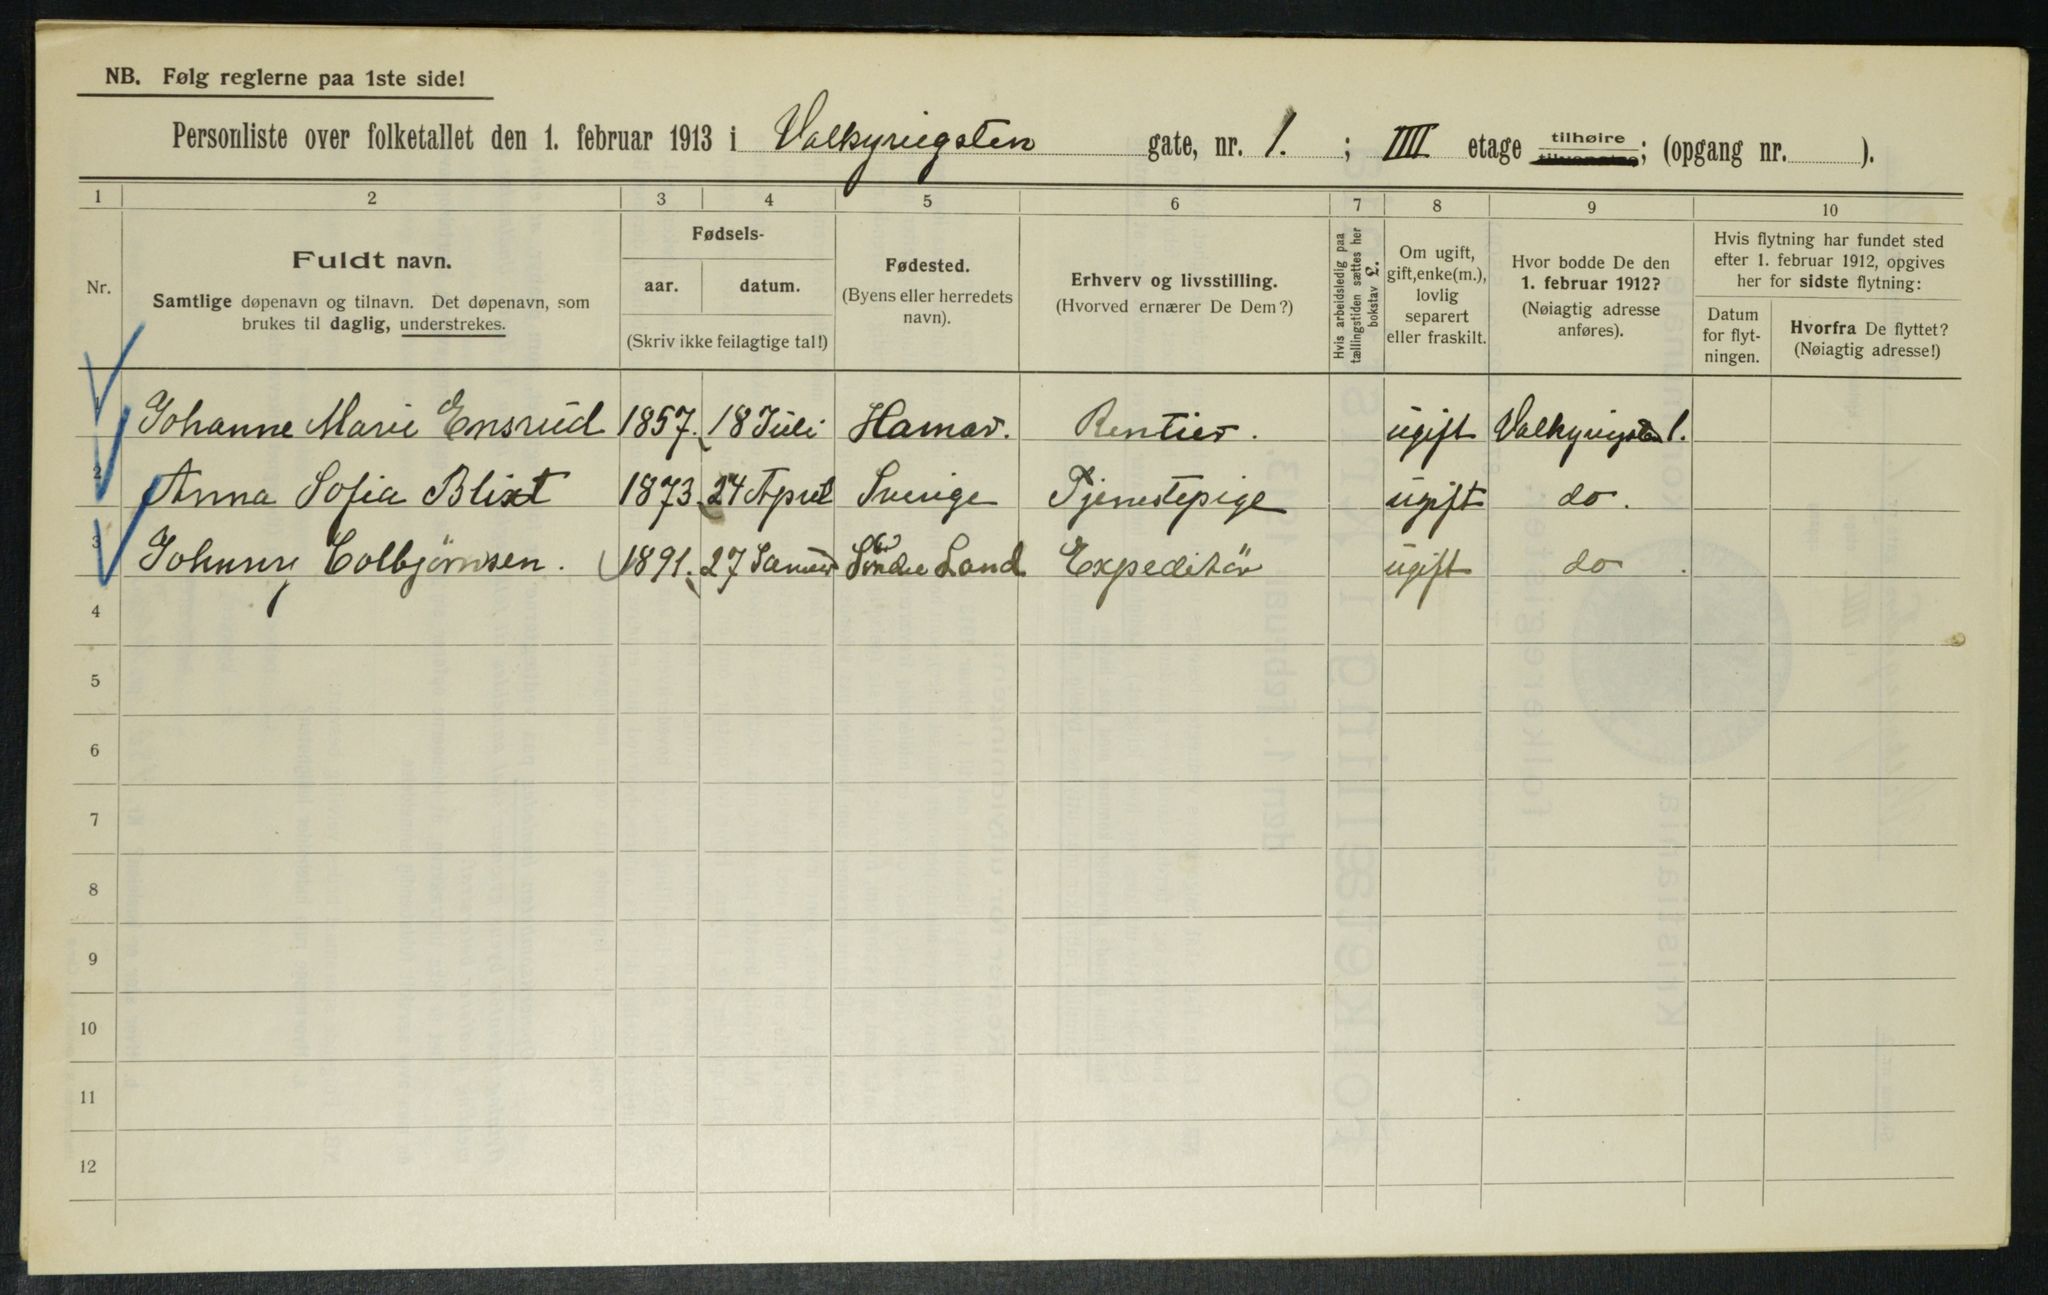 NB. Følg reglerne paa 1ste side!
Personliste over folketallet den 1. februar 1913 i Valkyriegaten gate, nr. 1. ; IIII etage tilhøire ; (opgang nr. ).
1 2 3 4 5 6 7 8 9 10
Nr.
Fuldt navn.
Samtlige døpenavn og tilnavn. Det døpenavn, som
brukes til daglig, understrekes.
Fødsels-
aar. datum.
(Skriv ikke feilagtige tal!)
Fødested.
(Byens eller herredets
navn).
Erhverv og livsstilling.
(Hvorved ernærer De Dem?)
Hvis arbeidsledig paa
tællingstiden sættes her
bokstav L.
Om ugift,
gift, enke(m.),
lovlig
separert
eller fraskilt.
Hvor bodde De den
1. februar 1912?
(Nøiagtig adresse
anføres).
Hvis flytning har fundet sted
efter 1. februar 1912, opgives
her for sidste flytning:
Datum
for flyt-
ningen.
Hvorfra De flyttet?
(Nøiagtig adresse!)
1 Johanne Marie Ensrud 1857. 18 Juli Hamar. Rentier. ugift Valkyriegaten 1.
2 Anna Sofia Blixt 1873 24 April Sverige Tjenestepige ugift do.
3 Johnny Colbjørnsen. 1891. 27 Januar Søndre Land Expeditör ugift do.
4
5
6
7
8
9
10
11
12